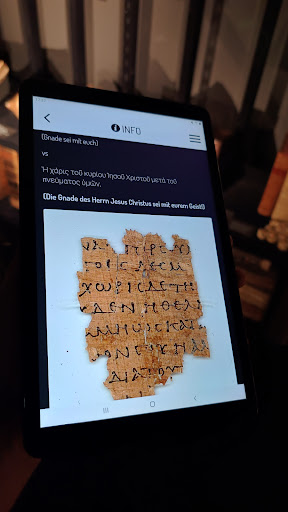 INFO
(Gnade sei mit euch)
vs
Ἡ χάρις τοῦ κυρίου Ἰησοῦ Χριστοῦ μετὰ τοῦ
πνεύματος ὑμῶν.
(Die Gnade des Herrn Jesus Christus sei mit eurem Geist!)
ΤΟΙϹΔΕϹΜ
ΧΩΡΙϹΔΕΤΗ
ΥΔΕΝΗΘΕΛ
ΑΜΗΩϹΚΑΤ
ΔΙΑΤΟΥ